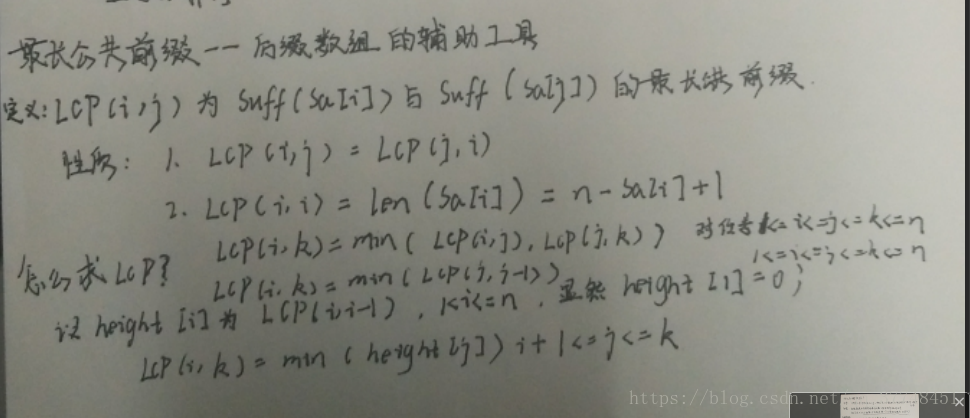 最长公共前缀——后缀数组的辅助工具
定义:LCP(i,j)为Suff(Sa[i])与Suff(Sa[j])的最长公共前缀.
性质: 1. LCP(i,j) = LCP(j,i)
2. LCP(i,i) = len(Sa[i]) = n-Sa[i]+1
怎么求LCP? LCP(i,k) = min( LCP(i,j), LCP(j,k) ) 对任意1<=i<=j<=k<=n
LCP(i,k) = min( LCP(j,j-1) ) 1<=i<=j<=k<=n
设height[i]为LCP(i,i-1), 1<i<=n, 显然height[1]=0;
LCP(i,k) = min(height[j]) i+1<=j<=k
https://blog.csdn.net/